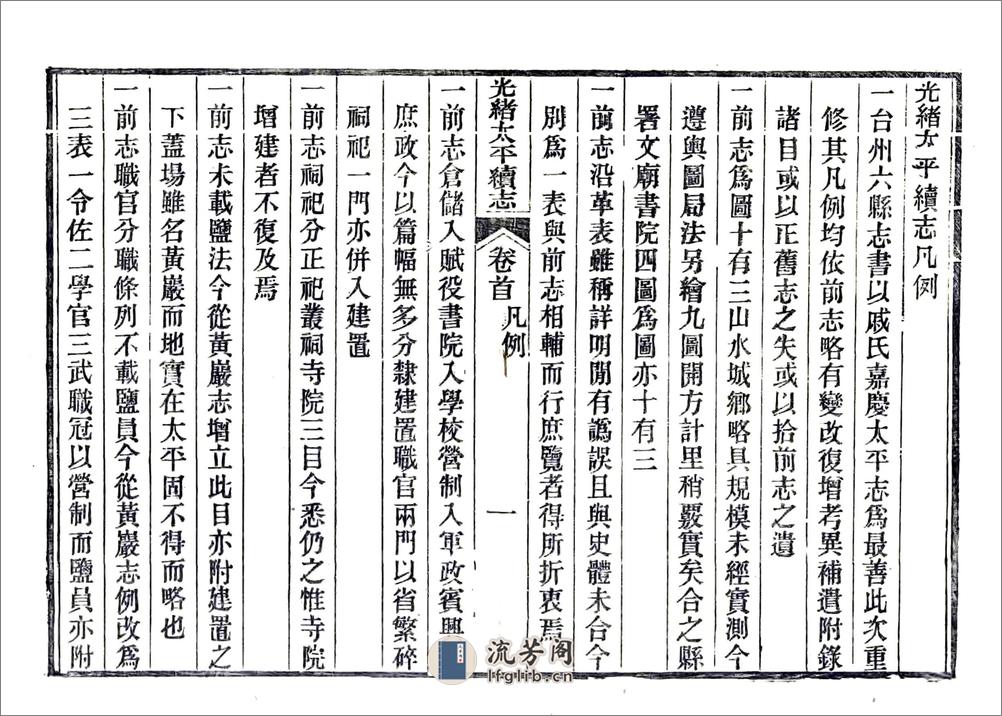 光緒太平續志凡例
一台州六縣志書以戚氏嘉慶太平志爲最善此次重
修其凡例均依前志略有變改復增考異補遺附錄
諸目或以正舊志之失或以拾前志之遺
一前志爲圖十有三山水城鄉略具規模未經實測今
遵輿圖局法另繪九圖開方計里稍覈實矣合之縣
署文廟書院四圖爲圖亦十有三
一前志沿革表雖稱詳明閒有譌誤且與史體未合今
別爲一表與前志相輔而行庶覽者得所折衷焉
光緒太平續志
卷首
凡例
一
一前志倉儲入賦役書院入學校營制入軍政賓興
庶政今以篇幅無多分隸建置職官兩門以省繁碎
祠祀一門亦併入建置
一前志祠祀分正祀叢祠寺院三目今悉仍之惟寺院
增建者不復及焉
一前志未載鹽法今從黃巖志增立此目亦附建置之
下蓋場雖名黃巖而地實在太平固不得而略也
一前志職官分職條列不載鹽員今從黃巖志例改爲
三表一令佐二學官三武職冠以營制而鹽員亦附
流芳閣
lfglib.cn